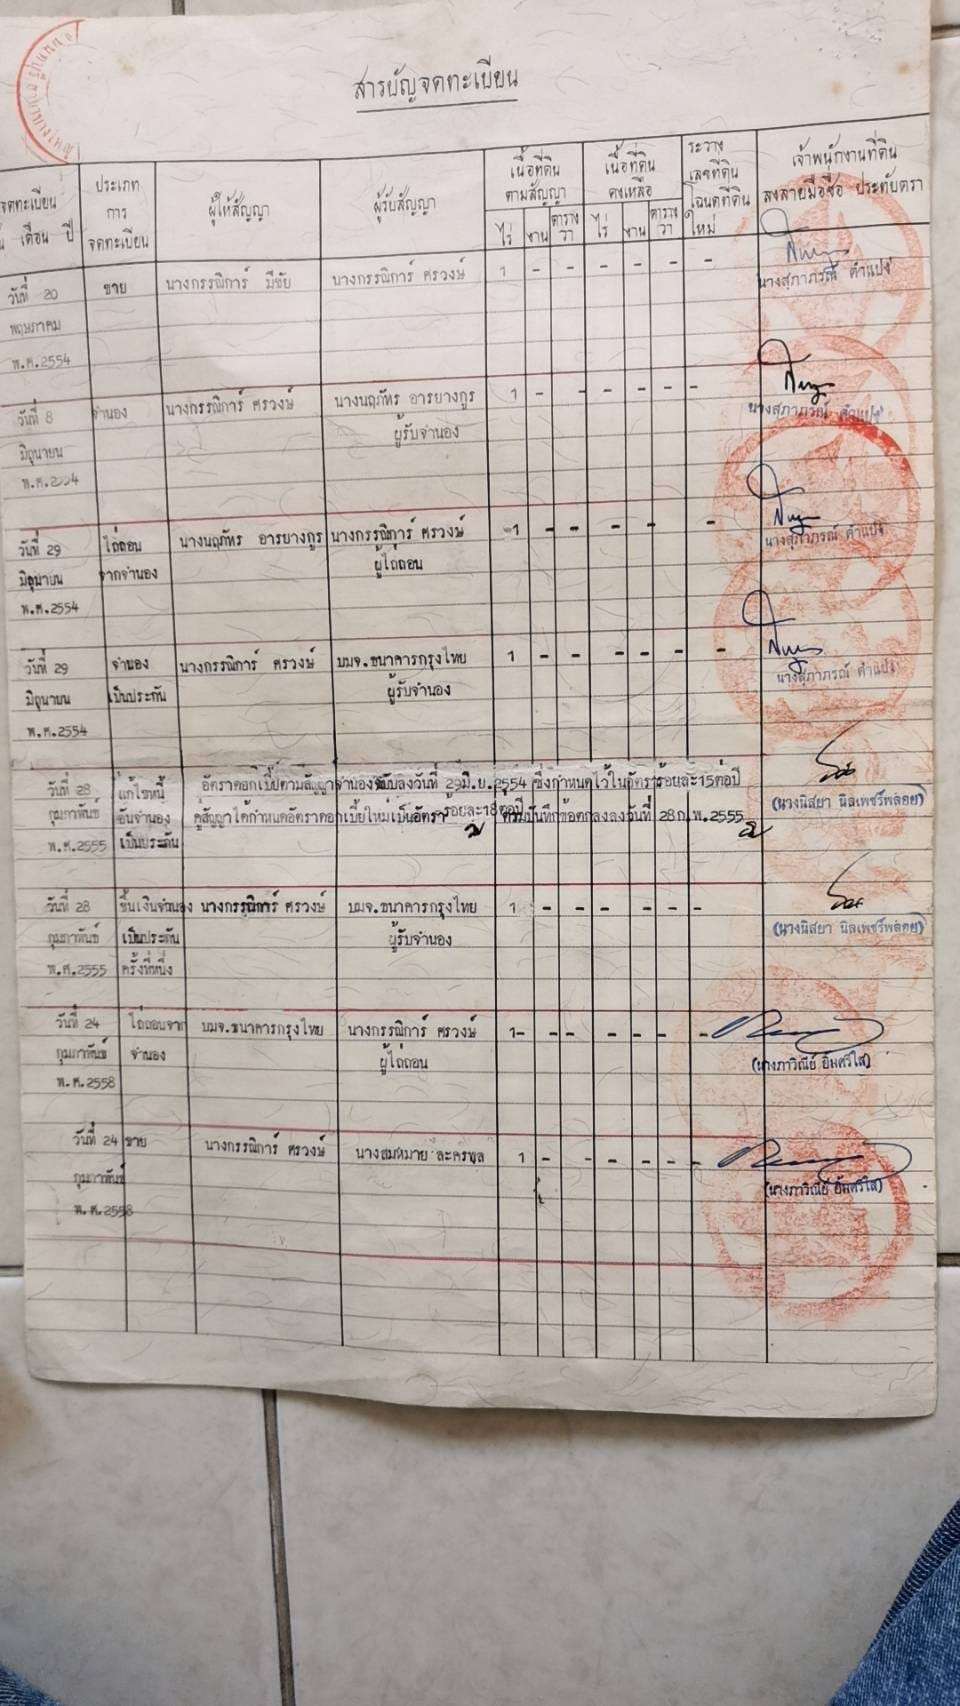 สารบัญจดทะเบียน
จดทะเบียน
เดือน ปี
ประเภท
การ
จดทะเบียน
ผู้ให้สัญญา
ผู้รับสัญญา
เนื้อที่ดิน
ตามสัญญา
ไร่ งาน ตาราง
วา
เนื้อที่ดิน
คงเหลือ
ไร่ งาน ตาราง
วา
ระวาง
เลขที่ดิน
โฉนดที่ดิน
ใหม่
เจ้าพนักงานที่ดิน
ลงลายมือชื่อ ประทับตรา
วันที่ 20 ขาย นางกรรณิการ์ มีชัย นางกรรณิการ์ ศรวงษ์ 1 - - - - - -
พฤษภาคม
พ.ศ.2554
นางสุภาภรณ์ คำแปง
วันที่ 8 จำนอง นางกรรณิการ์ ศรวงษ์ นางนฤภัทร อารยางกูร 1 - - - - -
มิถุนายน ผู้รับจำนอง
พ.ศ.2554
นางสุภาภรณ์ คำแปง
วันที่ 29 ไถ่ถอน นางนฤภัทร อารยางกูร นางกรรณิการ์ ศรวงษ์ 1 - - - - -
มิถุนายน จากจำนอง ผู้ไถ่ถอน
พ.ศ.2554
นางสุภาภรณ์ คำแปง
วันที่ 29 จำนอง นางกรรณิการ์ ศรวงษ์ บมจ.ธนาคารกรุงไทย 1 - - - - - -
มิถุนายน เป็นประกัน ผู้รับจำนอง
พ.ศ.2554
นางสุภาภรณ์ คำแปง
วันที่ 28 แก้ไขหนี้ อัตราดอกเบี้ยตามสัญญาจำนองฉบับลงวันที่ 29มิ.ย.2554 ซึ่งกำหนดไว้ในอัตราร้อยละ15ต่อปี
กุมภาพันธ์ อันจำนอง คู่สัญญาได้กำหนดอัตราดอกเบี้ยใหม่เป็นอัตราร้อยละ18ต่อปี ตามบันทึกข้อตกลงลงวันที่ 28ก.พ.2555
พ.ศ.2555 เป็นประกัน
(นางนิสยา นิลเพชร์พลอย)
วันที่ 28 ขึ้นเงินจำนอง นางกรรณิการ์ ศรวงษ์ บมจ.ธนาคารกรุงไทย 1 - - - - - -
กุมภาพันธ์ เป็นประกัน ผู้รับจำนอง
พ.ศ.2555 ครั้งที่หนึ่ง
(นางนิสยา นิลเพชร์พลอย)
วันที่ 24 ไถ่ถอนจาก บมจ.ธนาคารกรุงไทย นางกรรณิการ์ ศรวงษ์ 1 - - - - - -
กุมภาพันธ์ จำนอง ผู้ไถ่ถอน
พ.ศ.2558
(นางภาวิณีย์ อิ่มศรีใส)
วันที่ 24 ขาย นางกรรณิการ์ ศรวงษ์ นางสมหมาย ละครพล 1 - - - - - -
กุมภาพันธ์
พ.ศ.2558
(นางภาวิณีย์ อิ่มศรีใส)